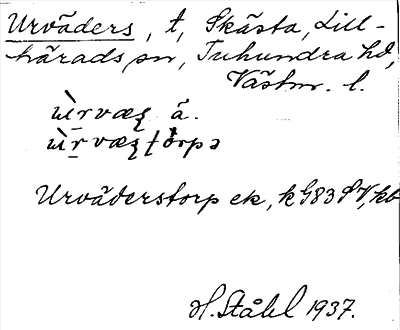 Urväders, t, Skästa, Lill-
härads sn, Tuhundra hd,
Västm. l.
ẁrvæʂ ä.
ẁrvæʂtȯrpə
Urväderstorp ek, k G83 SV, kb
H. Ståhl 1937.